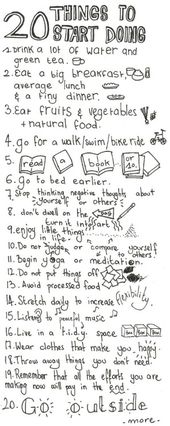 20 THINGS TO
START DOING
1. Drink a lot of water and
green tea.
2. Eat a big breakfast,
average lunch
& a tiny dinner.
3. Eat fruits & vegetables
+ natural food.
4. go for a walk/swim/bike ride
5. read a book or 10.
6. Go to bed earlier.
7. Stop thinking negative thoughts about
yourself or others
8. don't dwell on the past
turn it into art
9. enjoy little things
in life.
10. Do not judge or compare yourself
to others
11. Begin yoga or meditation.
12. Do not put things off
13. Avoid processed food
14. Stretch daily to increase flexibility
15. Listen to peaceful music
16. Live in a tidy space
17. Wear clothes that make you happy.
18. Throw away things you don't need.
19. Remember that all the efforts you are
making now will pay in the end.
20. Go outside
-more-